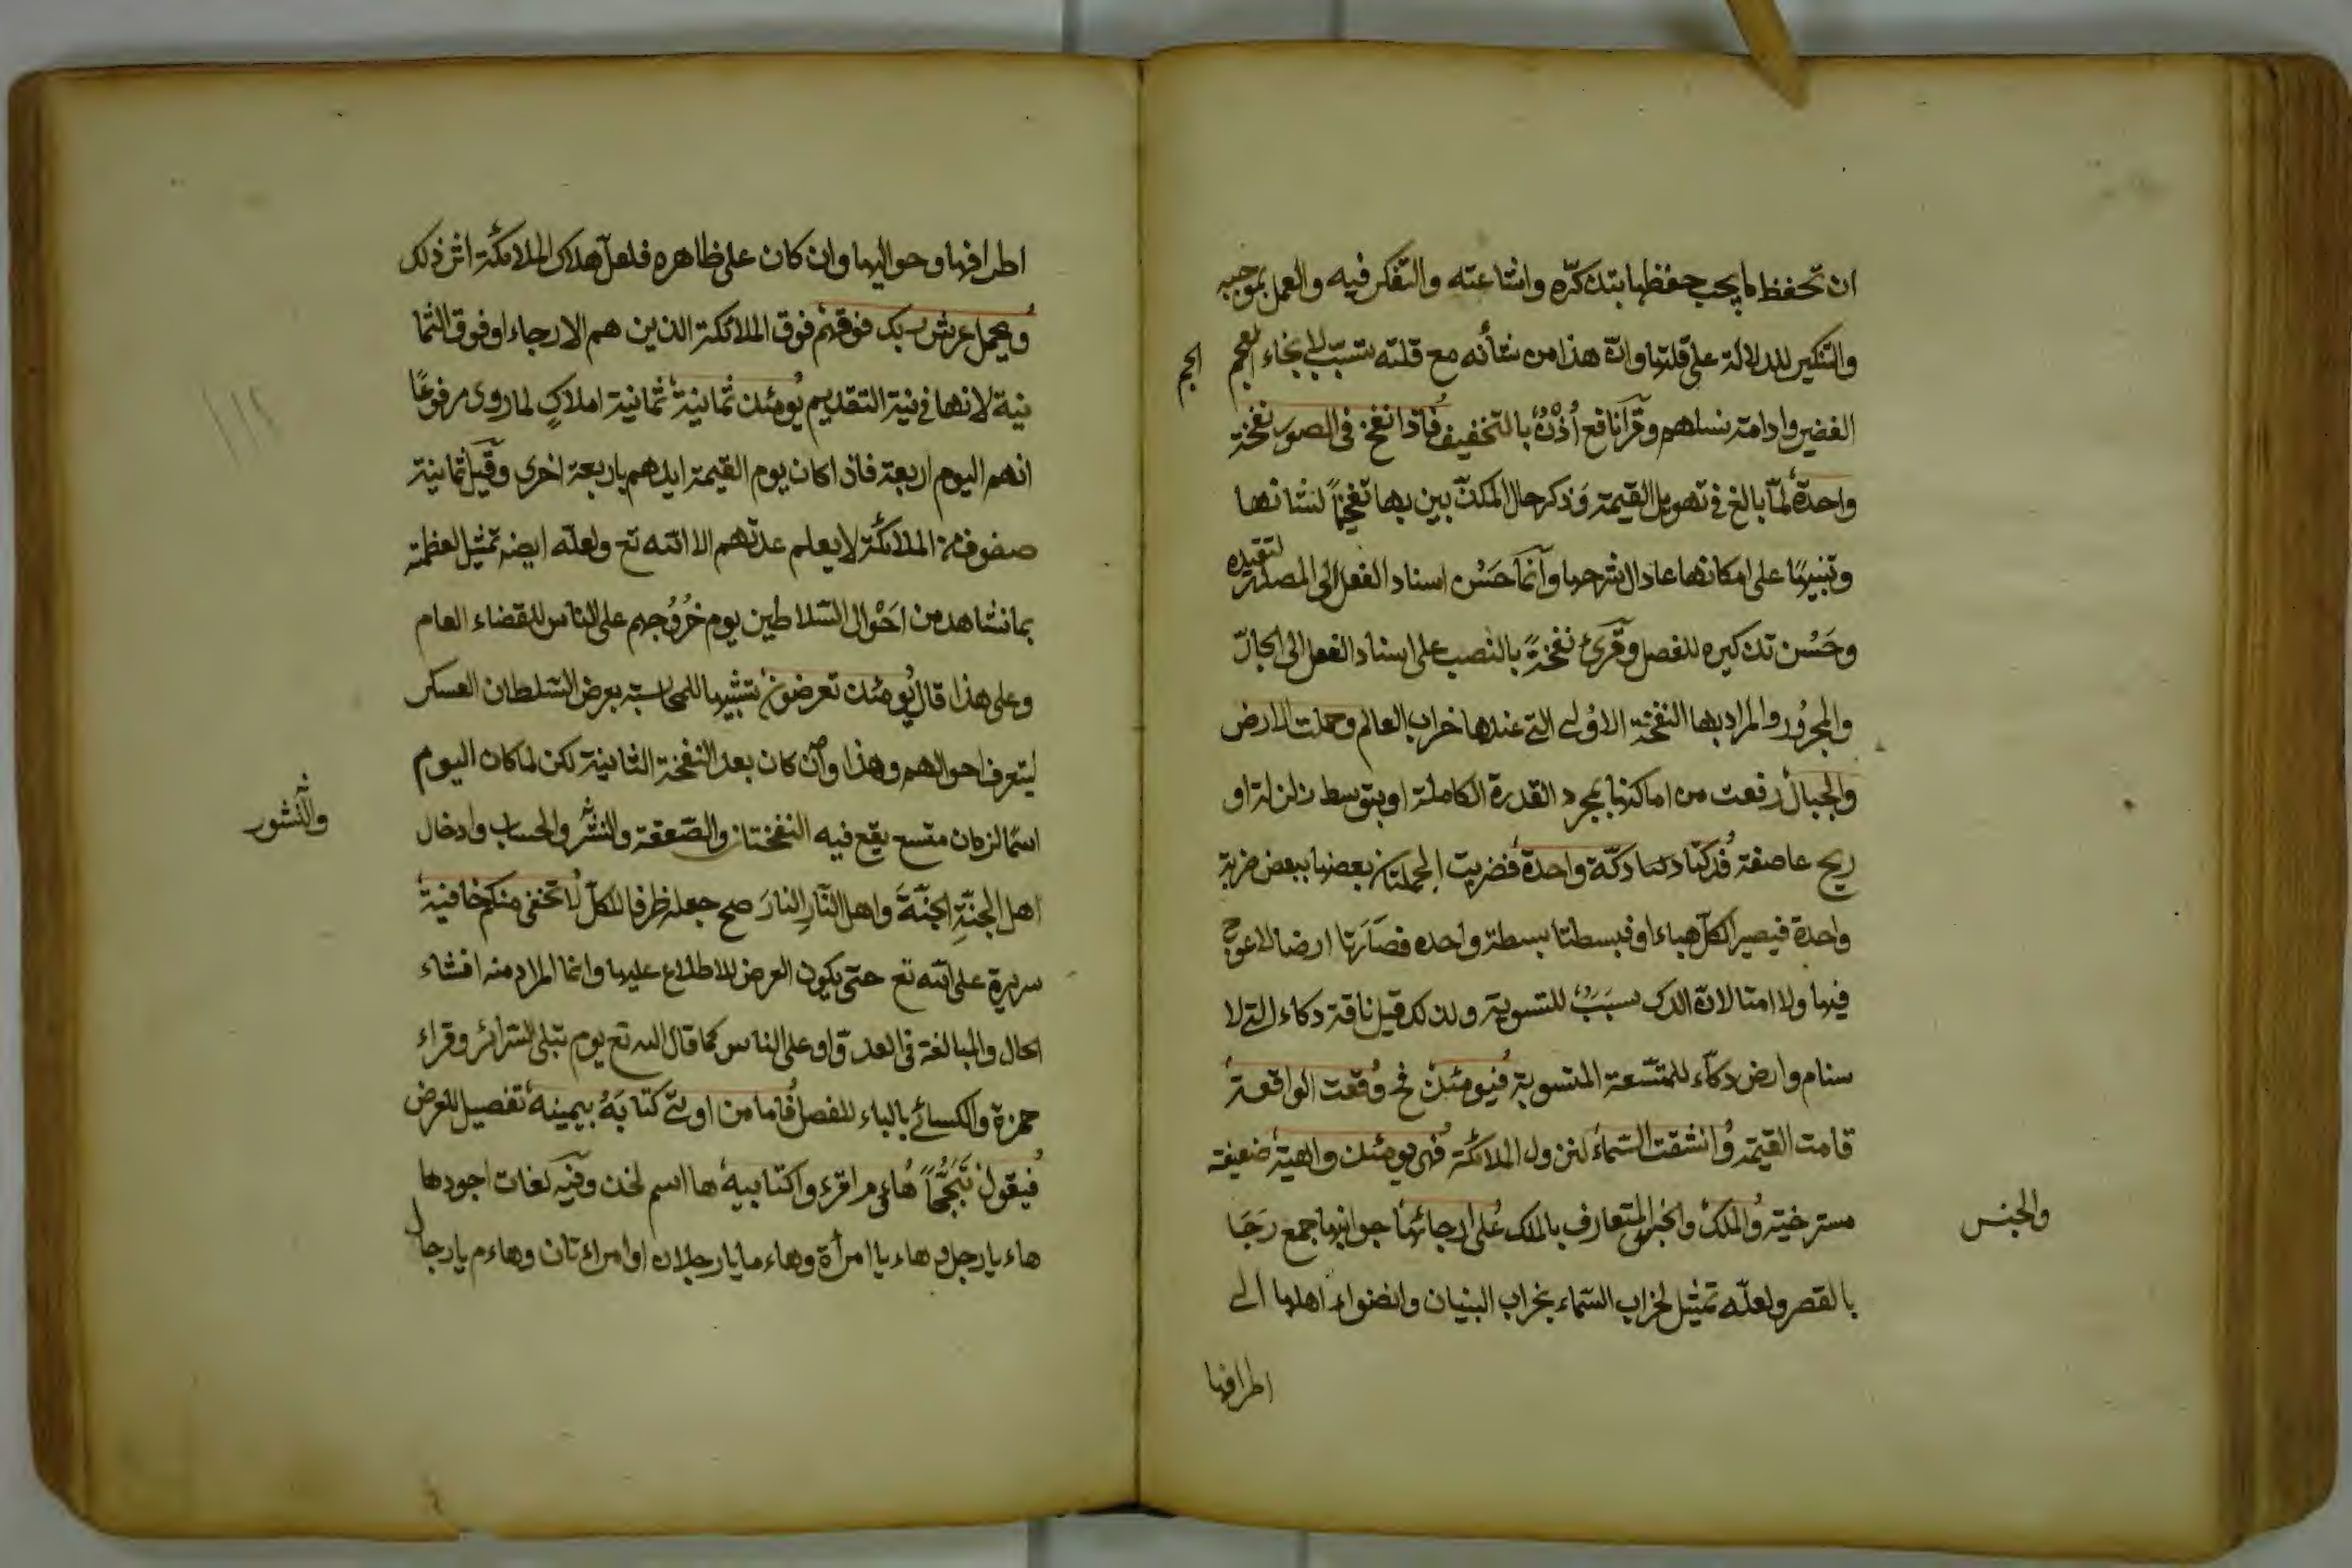 ان تحفظ ما يجب حفظها بتذكّره واشاعته والتفكر فيه والعمل بموجبه
والتنكير للدلالة على قلتها وانّ هذا من شأنه مع قلته تسبّب لانجاء الجم
الجم
الغفير وادامة نسلهم وقرأ نافع أُذْنٌ بالتخفيف فاذا نفخ فى الصور نفخة
واحدة لمّا بالغ فى تهويل القيمة وذكر حال المكذّبين بها تفخيمًا لشانها
وتنبيها على امكانها عاد الى شرحها وانّما حَسُن اسناد الفعل الى المصدر لتقيده
وحَسُن تذكيره للفصل وقرئ نفخةً بالنصب على اسناد الفعل الى الجارّ
والمجرُور والمراد بها النفخة الاوُلى التى عندها خراب العالم وحملت الارض
والجبال رفعت من اماكنها بمجرد القدرة الكاملة او بتوسط زلزلة او
ريح عاصفة فدكتا دكة واحدة فضربت الجملتان بعضها ببعض ضربة
واحدة فيصير الكلّ هباء او فبسطتا بسطة واحده فصَارَتا ارضا لا عوج
فيها ولا امتا لانّ الدك سَبَبٌ للتسوية ولذلك قيل ناقة دكاء للتى لا
سنام وارض دكّاء للمتّسعة المتسوية فيومئذ فح وقعت الواقعة
قامت القيمة وانشقت السّماء لنزول الملائكة فهى يومئذ واهية ضعيفة
مسترخية والملك والجنس المتعارف بالملك على ارجائها جوانبها جمع رَجَا
والجنس
بالقصر ولعلّه تمثيل لخراب السّماء بخراب البنيان وانضواء اهلها الى
اطرافها
اطرافها وحواليها وان كان على ظاهره فلعلّ هلاك الملائكة اثر ذلك
ويحمل عرش ربك فوقهم فوق الملائكة الذين هم الارجاء او فوق الثما
نية لانها فى نية التقديم يومئذ ثمانية ثمانية املاكٍ لما روى مرفوعًا
انهم اليوم اربعة فاذا كان يوم القيمة ايدهم باربعة اخرى وقيل ثمانية
صفوف من الملائكة لا يعلم عدتهم الا الله تع ولعلّه ايضه تمثيل لعظمته
بما نشاهد من احَوْال السّلاطين يوم خرُوُجهم على الناس للقضاء العام
وعلى هذا قال يومئذ تعرضون تشبيها للمحاسبة بعرض السّلطان العسكر
ليتعرف احوالهم وهذا وان كان بعد النفخة الثانية لكن لما كان اليوم
اسمًا لزمان متسع يقع فيه النفختان والصّعقة والنشر والحساب وادخال
والنّشور
اهل الجنّةِ الجنّةَ واهل النّارِ النارَ صح جعله ظرفا للكلّ لا تخفى منكم خافية
سريرة على الله تع حتى يكون العرض للاطلاع عليها وانما المراد منه افشاء
الحال والمبالغة فى العدل او على الناس كما قال الله تع يوم تبلى السّرائر وقراء
حمزة والكسائى بالياء للفصل فاما من اوتى كتابهُ بيمينه تفصيل للعرض
فيقول تَبَجُّحًا هاؤم اقرءوا كتابيه ها اسم لخذ وفيه لغات اجودها
هاء يا رجل وهاء يا امرأة وهاء ما يا رجلان او امراءتان وهاءم يا رجال